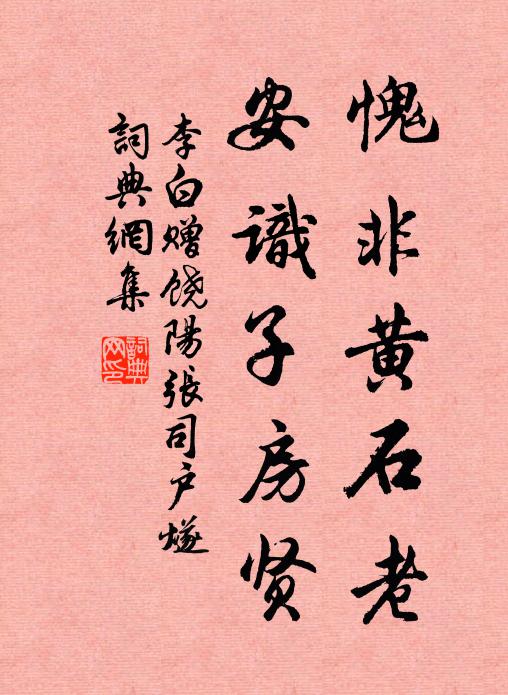 愧非黄石老
安識子房贤
李白赠饶陽張司户燧
詞典網集
詞典网印